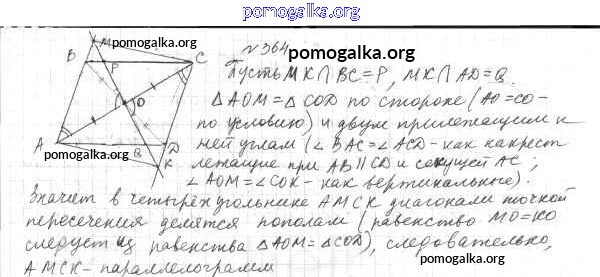 pomogalka.org
N 364
pomogalka.org
pomogalka.org
M
B
P
C
O
A
Q
D
K
pomogalka.org
Пусть MK∩BC=P, MK∩AD=Q.
△AOM=△COD по стороне (AO=CO-
по условию) и двум прилежащим к
ней углам (∠BAC=∠ACD - как накрест
лежащие при AB∥CD и секущей AC;
∠AOM=∠COK - как вертикальные).
Значит в четырёхугольнике AMCK диагонали точкой
пересечения делятся пополам (равенство MO=KO
следует из равенства △AOM=△COD), следовательно,
AMCK - параллелограмм